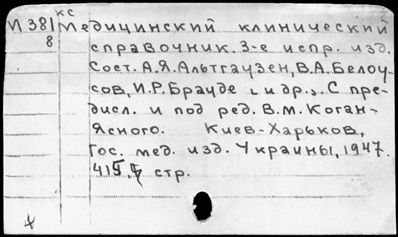 кс
М 381 Медицинский клинический
8 справочник. 3-е испр. изд.
Сост. А.Я. Альтгаузен, В.А. Белоу-
сов, И.Р. Брауде и др. С пре-
дисл. и под ред. В.М. Коган-
Ясного. Киев-Харьков,
Гос. мед. изд. Украины, 1947.
415 стр.